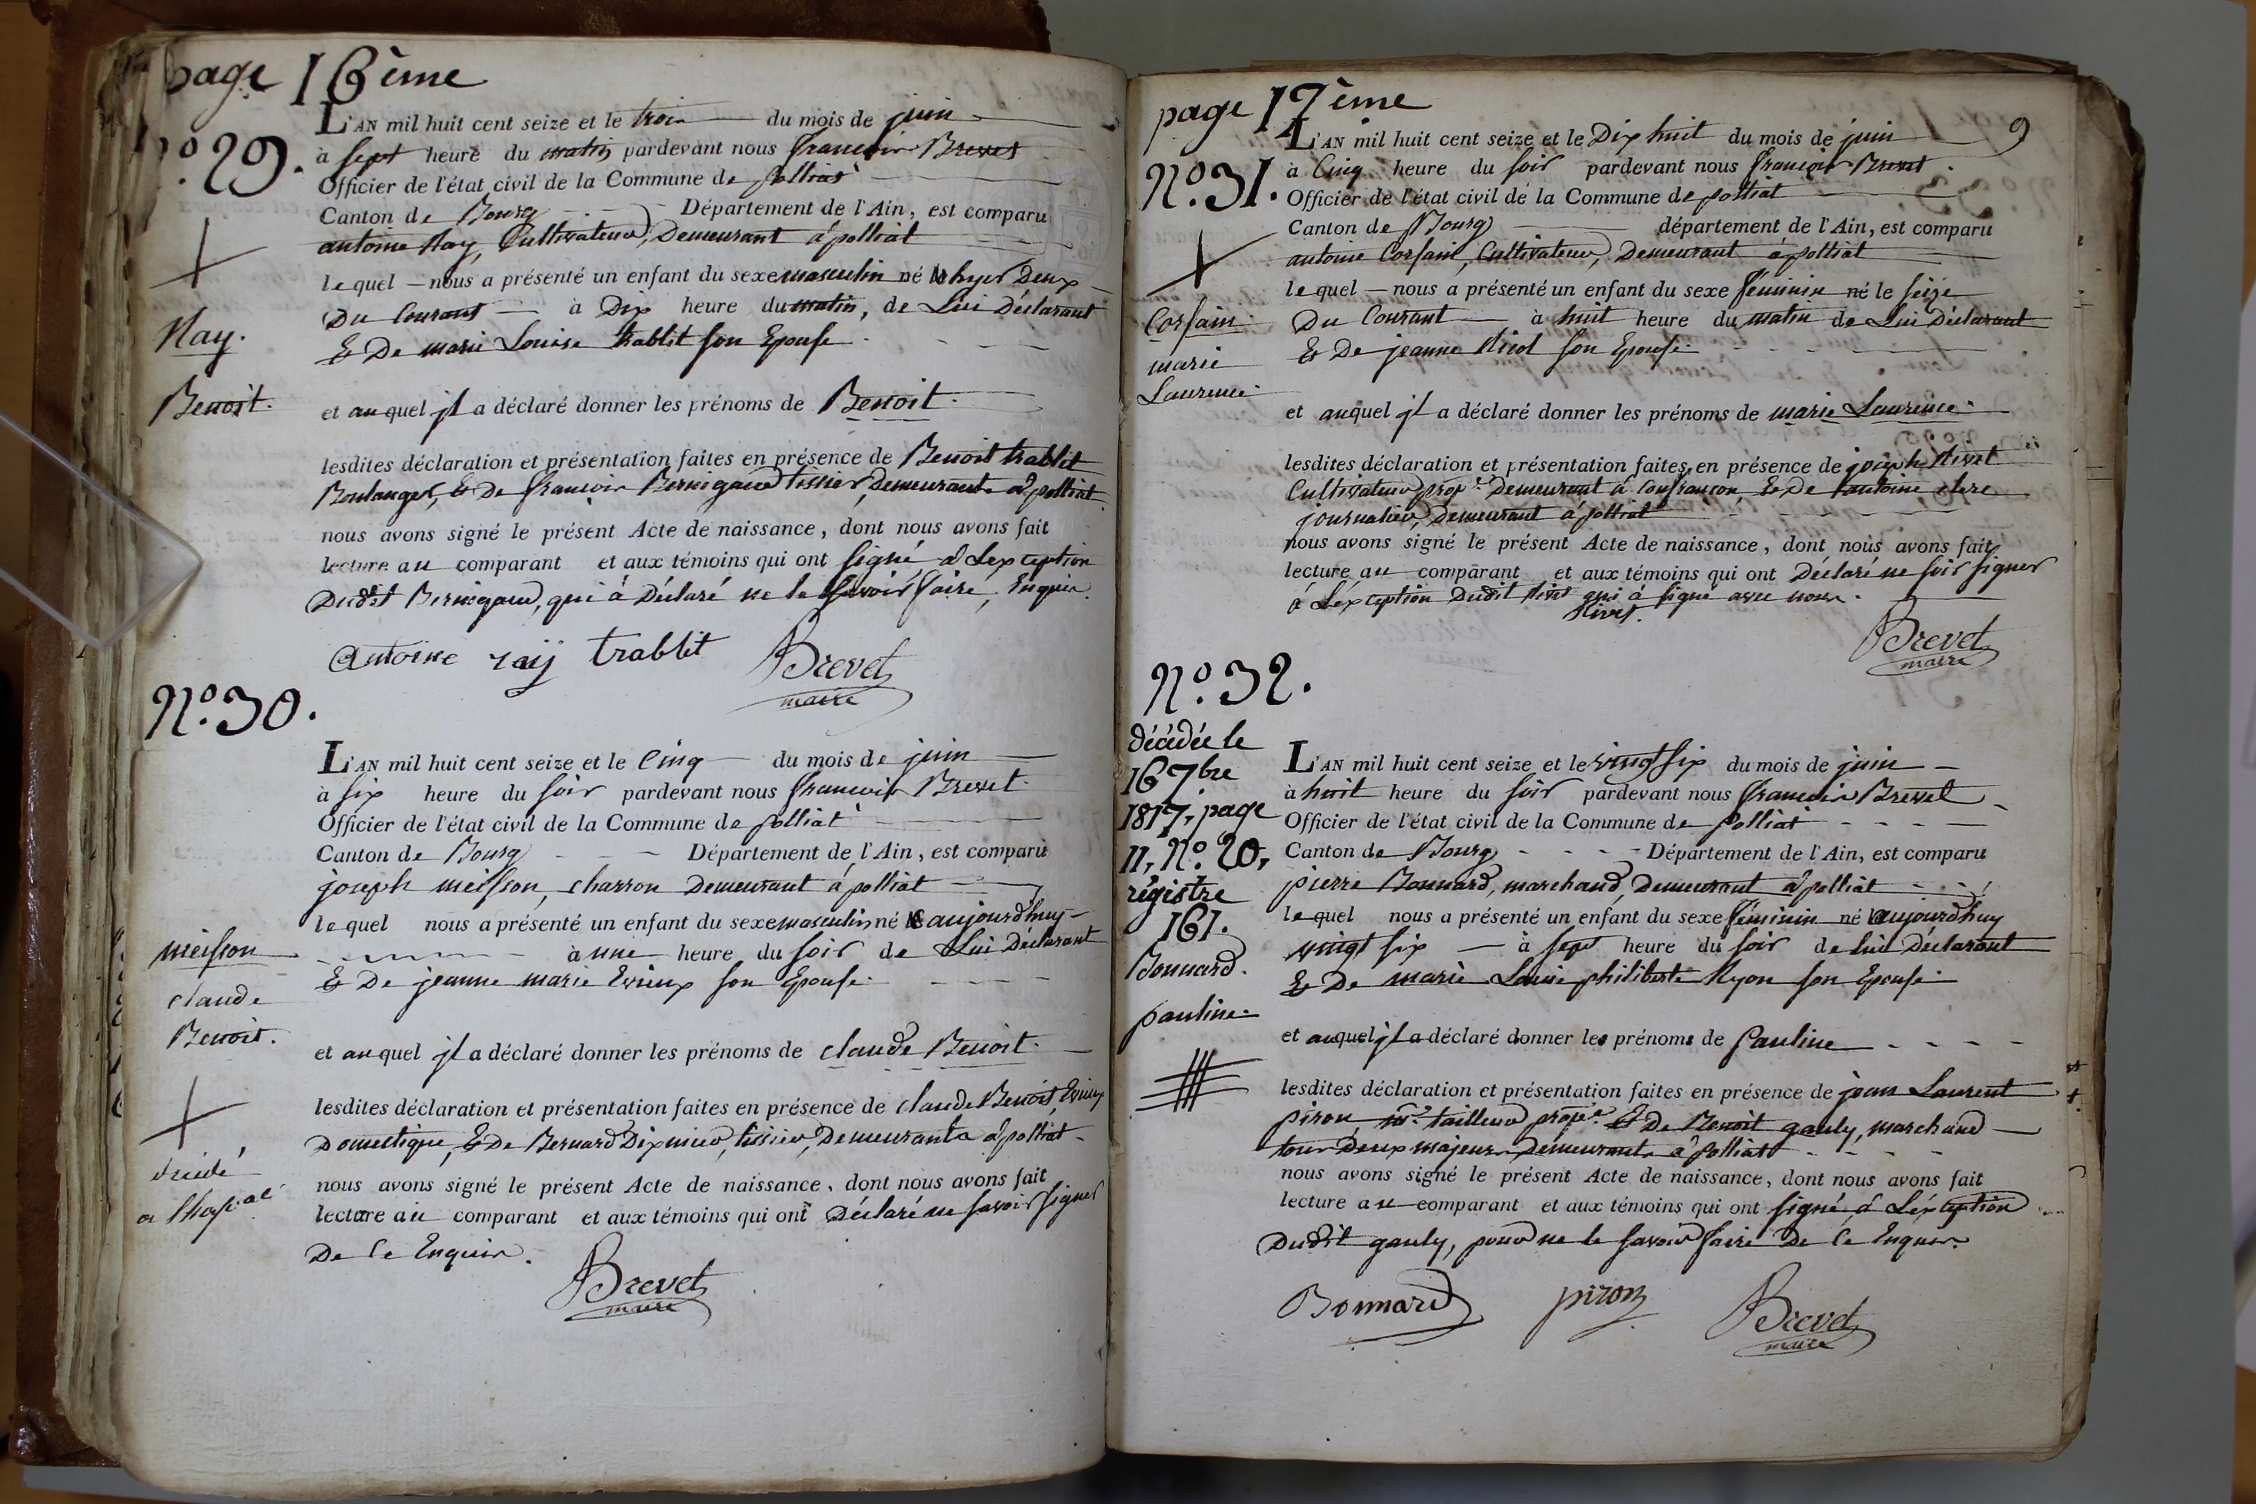 page 16ème
N.o 29.
L'AN mil huit cent seize et le trois du mois de juin
à sept heure du matin pardevant nous françois Brevet
Officier de l'état civil de la Commune de polliat
Canton de Bourg Département de l'Ain, est comparu
antoine Ray, Cultivateur, Demeurant à polliat
lequel nous a présenté un enfant du sexe masculin né hyer Deux
Du Courant à Dix heure du matin, de Lui Déclarant
& De marie Louise trablit son Epouse
Ray.
Benoit.
et auquel jl a déclaré donner les prénoms de Benoit.
lesdites déclaration et présentation faites en présence de Benoit trablit
Boulanger, & De françois Bernigaud tissier, Demeurants à polliat
nous avons signé le présent Acte de naissance, dont nous avons fait
lecture au comparant et aux témoins qui ont signé à Lexception
Dudit Bernigaud, qui à Déclaré ne le savoir faire, Enquis.
antoine raij trablit Brevet
maire
N.o 30.
L'AN mil huit cent seize et le Cinq du mois de juin
à six heure du soir pardevant nous françois Brevet
Officier de l'état civil de la Commune de polliat
Canton de Bourg Département de l'Ain, est comparu
joseph meisson, charron Demeurant à polliat
lequel nous a présenté un enfant du sexe masculin né aujourd'huy
à une heure du soir de Lui Déclarant
& De jeanne marie Evieux son Epouse
meisson
claude
Benoit.
et auquel jl a déclaré donner les prénoms de claude Benoit.
lesdites déclaration et présentation faites en présence de claude Benoit Evieux
Domestique, & De Bernard Dixmier, tissier, Demeurants à polliat
nous avons signé le présent Acte de naissance, dont nous avons fait
lecture au comparant et aux témoins qui ont Déclaré ne savoir signer
De Ce Enquis.
Brevet
maire
page 17ème
9
N.o 31.
L'AN mil huit cent seize et le Dix huit du mois de juin
à Cinq heure du soir pardevant nous françois Brevet
Officier de l'état civil de la Commune de polliat
Canton de Bourg département de l'Ain, est comparu
antoine Corsain, Cultivateur, Demeurant à polliat
lequel nous a présenté un enfant du sexe féminin né le seize
Du Courant à huit heure du matin de Lui Déclarant
& De jeanne Nicol son Epouse
Corsain
marie
Laurence
et auquel jl a déclaré donner les prénoms de marie Laurence.
lesdites déclaration et présentation faites en présence de joseph Rivet
Cultivateur prop.re Demeurant à Confrançon, & De antoine clere
journalier, Demeurant à polliat
nous avons signé le présent Acte de naissance, dont nous avons fait
lecture au comparant et aux témoins qui ont Déclaré ne savoir signer
à Léxception Dudit Rivet qui à signé avec nous.
Rivet.
Brevet
maire
N.o 32.
décédée le
16 7bre
1817, page
11, N.o 20,
régistre
161.
Bonnard.
pauline.
L'AN mil huit cent seize et le vingt six du mois de juin
à huit heure du soir pardevant nous françois Brevet
Officier de l'état civil de la Commune de polliat
Canton de Bourg Département de l'Ain, est comparu
pierre Bonnard, marchand, Demeurant à polliat
lequel nous a présenté un enfant du sexe féminin né aujourd'huy
vingt six à sept heure du soir de lui Déclarant
& De marie Louise philiberte Ryon son Epouse
et auquel jl a déclaré donner les prénoms de Pauline
lesdites déclaration et présentation faites en présence de jean Laurent
piron, tailleur prop.re & De Benoit gauly, marchand
tous Deux majeurs Demeurants à polliat
nous avons signé le présent Acte de naissance, dont nous avons fait
lecture au comparant et aux témoins qui ont signé à Léxception
Dudit gauly, pour ne le savoir faire De Ce Enquis.
Bonnard piron Brevet
maire